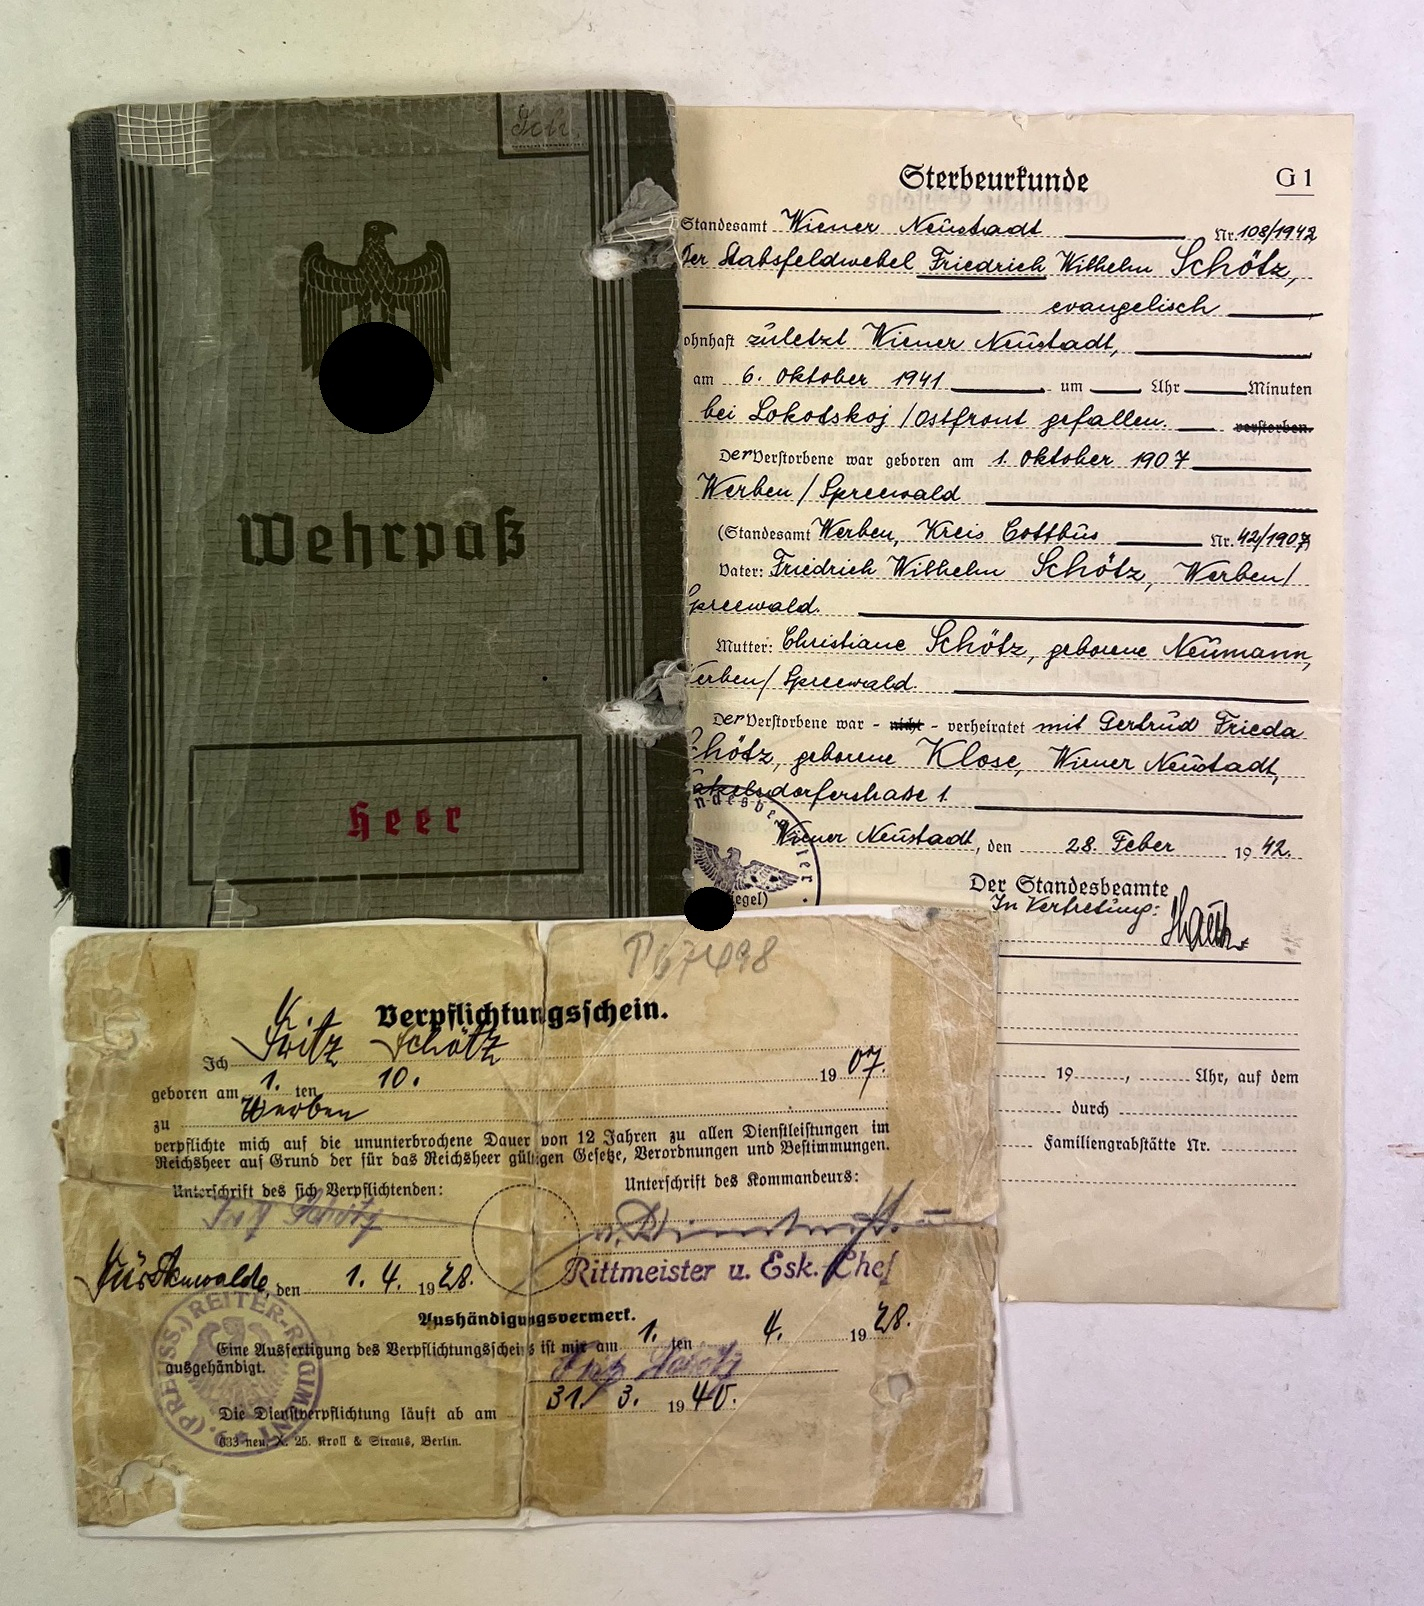 Sch.
Wehrpaß
Heer
Sterbeurkunde
G 1
Standesamt Wiener Neustadt Nr. 108/1942
Der Stabsfeldwebel Friedrich Wilhelm Schötz,
evangelisch
ohnhaft zuletzt Wiener Neustadt,
am 6. Oktober 1941 um Uhr Minuten
bei Lokotskoj / Ostfront gefallen. verstorben.
Der Verstorbene war geboren am 1. Oktober 1907
Werben / Spreewald
(Standesamt Werben, Kreis Cottbus Nr. 42/1907)
Vater: Friedrich Wilhelm Schötz, Werben/
Spreewald.
Mutter: Christiane Schötz, geborene Neumann,
erben / Spreewald.
Der Verstorbene war - nicht - verheiratet mit Gertrud Frieda
chötz, geborene Klose, Wiener Neustadt,
dorferstraße 1
Wiener Neustadt, den 28. Feber 1942.
egel)
Der Standesbeamte
In Vertretung:
19 , Uhr, auf dem
durch
Familiengrabstätte Nr.
P 67498
Verpflichtungsschein.
Ich Fritz Schötz
geboren am 1. ten 10. 1907.
zu Werben
verpflichte mich auf die ununterbrochene Dauer von 12 Jahren zu allen Dienstleistungen im
Reichsheer auf Grund der für das Reichsheer gültigen Gesetze, Verordnungen und Bestimmungen.
Unterschrift des sich Verpflichtenden:
Unterschrift des Kommandeurs:
Fritz Schötz
Rittmeister u. Esk.-Chef
Fürstenwalde, den 1. 4. 1928.
Aushändigungsvermerk.
Eine Ausfertigung des Verpflichtungsscheins ist mir am 1. ten 4. 1928.
ausgehändigt.
Fritz Schötz
Die Dienstverpflichtung läuft ab am 31. 3. 1940.
633 neu. X. 25. Kroll & Straus, Berlin.
9. (PREUSS.) REITER-REGIMENT